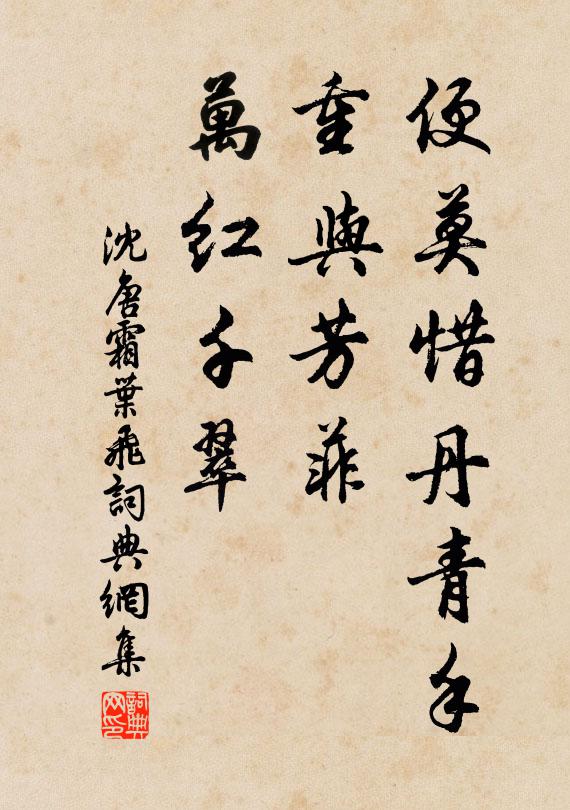 便莫惜丹青手
重與芳菲
萬紅千翠
沈唐霜葉飛詞典網集
詞典網印